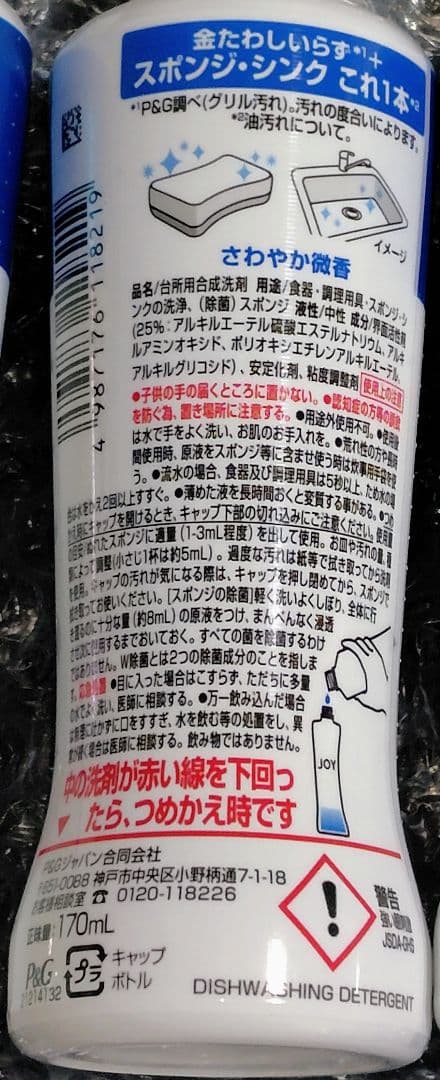 金たわしいらず*¹+
スポンジ・シンク これ1本*²
*¹P&G調べ(グリル汚れ)。汚れの度合いによります。
*²油汚れについて。
イメージ
さわやか微香
品名/台所用合成洗剤 用途/食器・調理用具・スポンジ・シ
ンクの洗浄、(除菌)スポンジ 液性/中性 成分/界面活性剤
(25%:アルキルエーテル硫酸エステルナトリウム、アルキ
ルアミンオキシド、ポリオキシエチレンアルキルエーテル、
アルキルグリコシド)、安定化剤、粘度調整剤 使用上の注意
●子供の手の届くところに置かない。●認知症の方等の誤飲
を防ぐ為、置き場所に注意する。●用途外使用不可。●使用後
は水で手をよく洗い、お肌のお手入れを。●荒れ性の方や長時
間使用時、原液をスポンジ等に含ませ使う時は炊事用手袋を使
う。●流水の場合、食器及び調理用具は5秒以上、ため水の場
合は水をかえ2回以上すすぐ。●薄めた液を長時間おくと変質する事がある。●つめ
かえ時にキャップを開けるとき、キャップ下部の切れ込みにご注意ください。使用量
の目安/ぬれたスポンジに適量(1-3mL程度)を出して使用。お皿や汚れの量、種
類によって調整(小さじ1杯は約5mL)。過度な汚れは紙等で拭き取ってから洗剤
を使用。キャップの汚れが気になる際は、キャップを押し閉めてから、スポンジで
拭き取ってお使いください。[スポンジの除菌]軽く洗いよくしぼり、全体に行
き渡るのに十分な量(約8mL)の原液をつけ、まんべんなく浸透
させ次に使用するまでおいておく。すべての菌を除菌するわけ
ではありません。W除菌とは2つの除菌成分のことを指しま
す。応急処置 ●目に入った場合はこすらず、ただちに多量
の水でよく洗い、医師に相談する。●万一飲み込んだ場合
は無理に吐かずに口をすすぎ、水を飲む等の処置をし、異
常が続く場合は医師に相談する。飲み物ではありません。
JOY
中の洗剤が赤い線を下回っ
たら、つめかえ時です
P&Gジャパン合同会社
〒651-0088 神戸市中央区小野柄通7-1-18
お客様相談室 ☎ 0120-118226
正味量:170mL
P&G
21214132
プラ
キャップ
ボトル
警告
強い眼刺激
JSDA-GHS
DISHWASHING DETERGENT
4 987176 118219